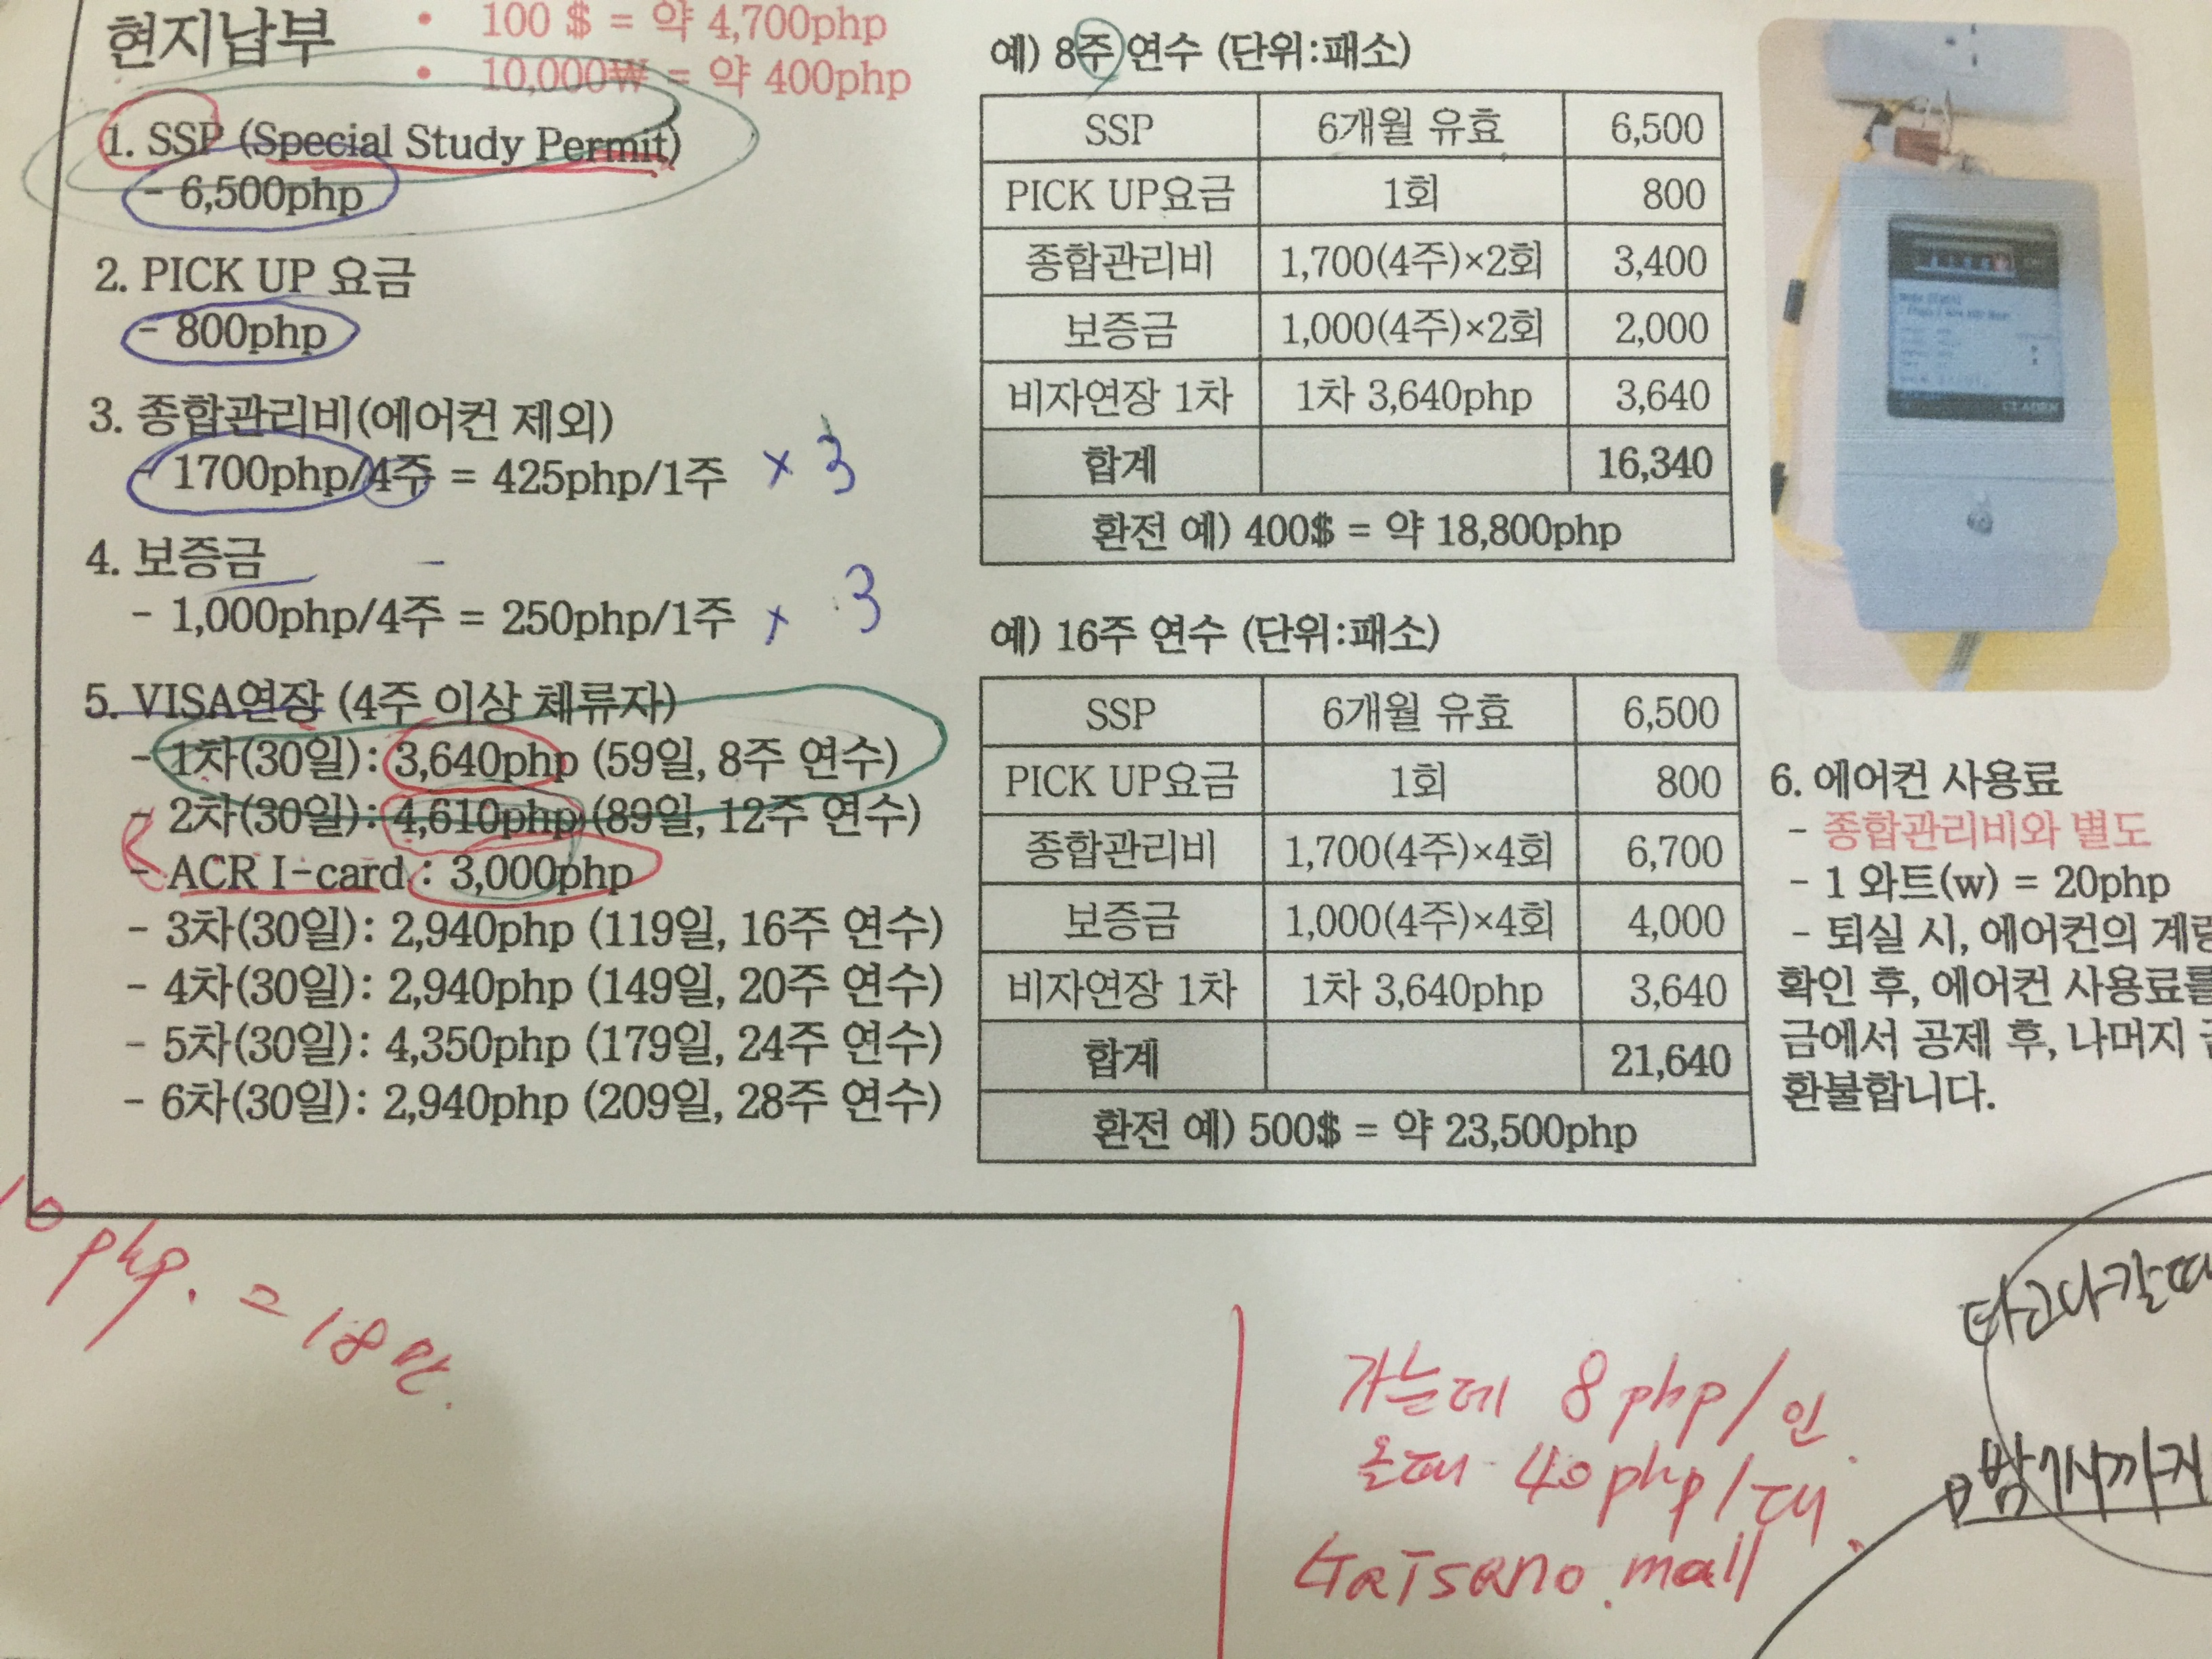 현지납부
• 100 $ = 약 4,700php
• 10,000₩ = 약 400php
1. SSP (Special Study Permit)
- 6,500php
2. PICK UP 요금
- 800php
3. 종합관리비(에어컨 제외)
- 1700php/4주 = 425php/1주 × 3
4. 보증금
- 1,000php/4주 = 250php/1주 × 3
5. VISA연장 (4주 이상 체류자)
- 1차(30일): 3,640php (59일, 8주 연수)
- 2차(30일): 4,610php (89일, 12주 연수)
- ACR I-card : 3,000php
- 3차(30일): 2,940php (119일, 16주 연수)
- 4차(30일): 2,940php (149일, 20주 연수)
- 5차(30일): 4,350php (179일, 24주 연수)
- 6차(30일): 2,940php (209일, 28주 연수)
예) 8주 연수 (단위:패소)
SSP 6개월 유효 6,500
PICK UP요금 1회 800
종합관리비 1,700(4주)×2회 3,400
보증금 1,000(4주)×2회 2,000
비자연장 1차 1차 3,640php 3,640
합계 16,340
환전 예) 400$ = 약 18,800php
예) 16주 연수 (단위:패소)
SSP 6개월 유효 6,500
PICK UP요금 1회 800
종합관리비 1,700(4주)×4회 6,700
보증금 1,000(4주)×4회 4,000
비자연장 1차 1차 3,640php 3,640
합계 21,640
환전 예) 500$ = 약 23,500php
6. 에어컨 사용료
- 종합관리비와 별도
- 1 와트(w) = 20php
- 퇴실 시, 에어컨의 계량
확인 후, 에어컨 사용료를
금에서 공제 후, 나머지
환불합니다.
10 php. = 18만.
가는데 8php/인.
올때 40php/대.
GaTsano.mall
타고나갈때
밤 7시까지